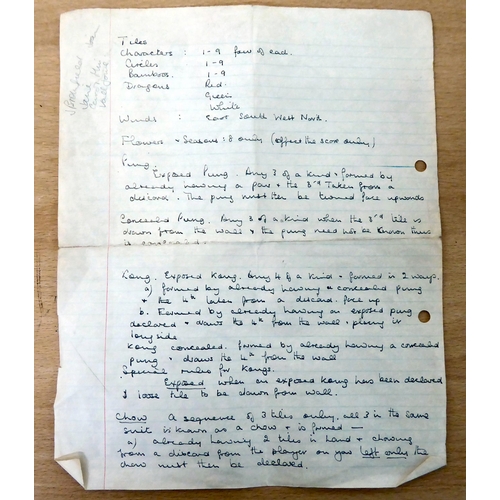 Tiles
Characters : 1-9 four of each.
Circles 1-9
Bamboos. 1-9
Dragons Red.
Green
White
Winds : East South West North.
Flowers + Seasons: 8 only (affect the score only)
Pung.
Exposed Pung. Any 3 of a kind + formed by
already having a pair + the 3rd Taken from a
discard. The pung must then be turned face upwards
Concealed Pung. Any 3 of a kind when the 3rd tile is
drawn from the wall + the pung need not be known thus
is
Kong. Exposed Kong. Any 4 of a kind + formed in 2 ways.
a) formed by already having a concealed pung
+ the 4th taken from a discard. face up
b. Formed by already having an exposed pung
declared + draws the 4th from the wall + placing it
longside
Kong concealed. formed by already having a concealed
pung + draws the 4th from the wall
Special rules for Kongs.
Exposed when an exposed kong has been declared
1 loose tile to be drawn from wall.
Chow A sequence of 3 tiles only, all 3 in the same
suit is known as a chow + is formed —
a) already having 2 tiles in hand + chowing
from a discard from the player on your left only the
chow must then be declared.